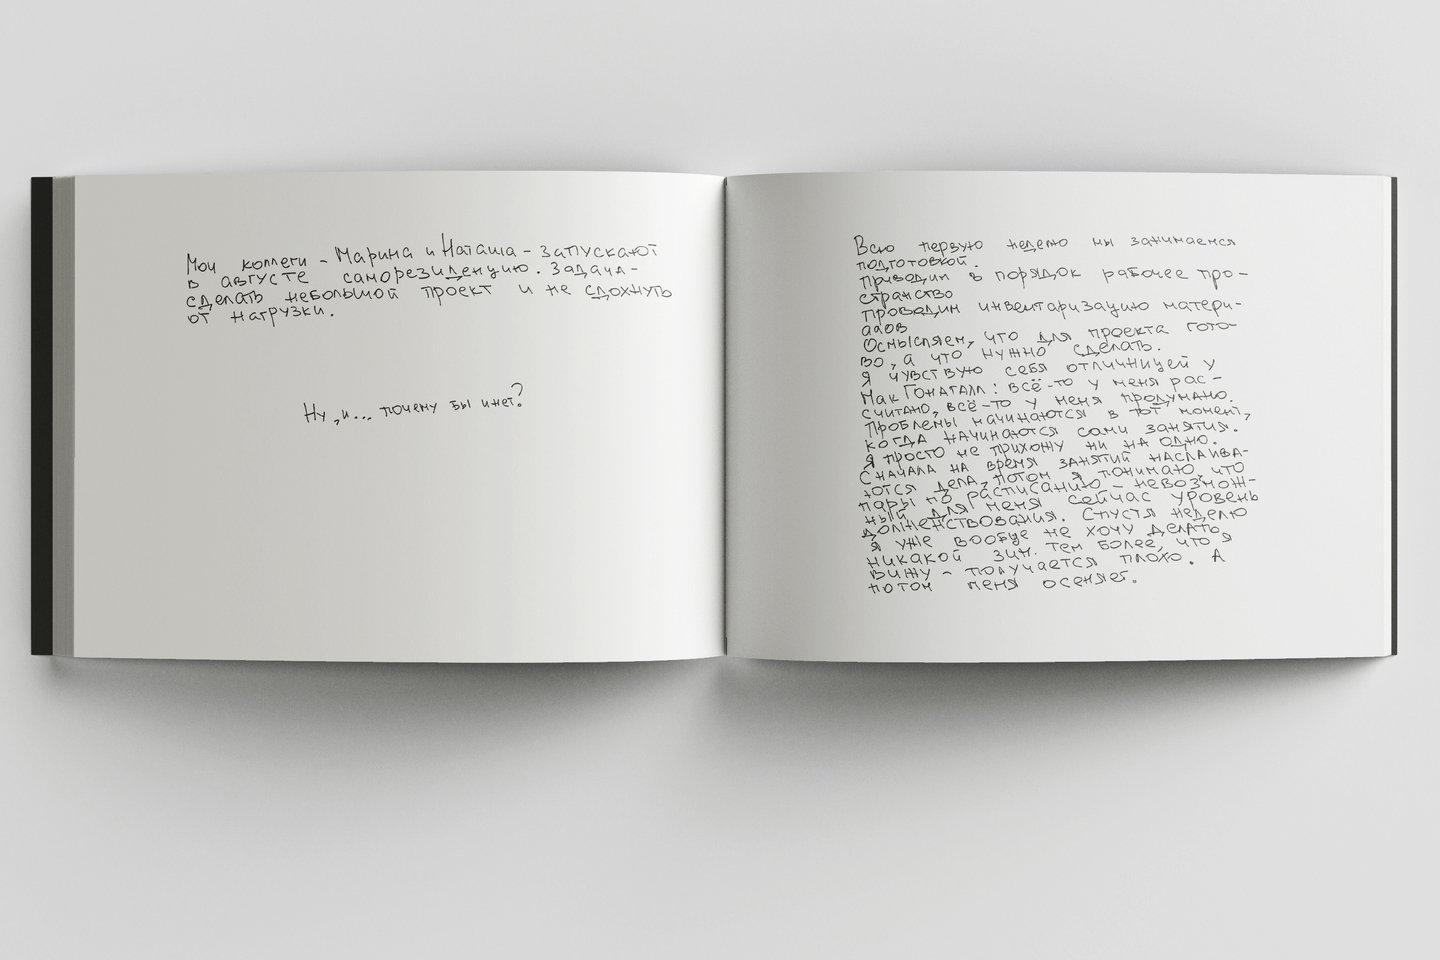 Мои коллеги - Марина и Наташа - запускают
в августе саморезиденцию. Задача -
сделать небольшой проект и не сдохнуть
от нагрузки.
Ну, и... почему бы и нет?
Всю первую неделю мы занимаемся
подготовкой.
Приводим в порядок рабочее про-
странство
Проводим инвентаризацию матери-
алов
Осмысляем, что для проекта гото-
во, а что нужно сделать.
Я чувствую себя отличницей у
МакГонагалл: всё-то у меня рас-
считано, всё-то у меня продумано.
Проблемы начинаются в тот момент,
когда начинаются сами занятия.
Я просто не прихожу ни на одно.
Сначала на время занятий наслаива-
ются дела, потом я понимаю, что
пары по расписанию - невозмож-
ный для меня сейчас уровень
долженствования. Спустя неделю
я уже вообще не хочу делать
никакой зин. Тем более, что я
вижу - получается плохо. А
потом меня осеняет.